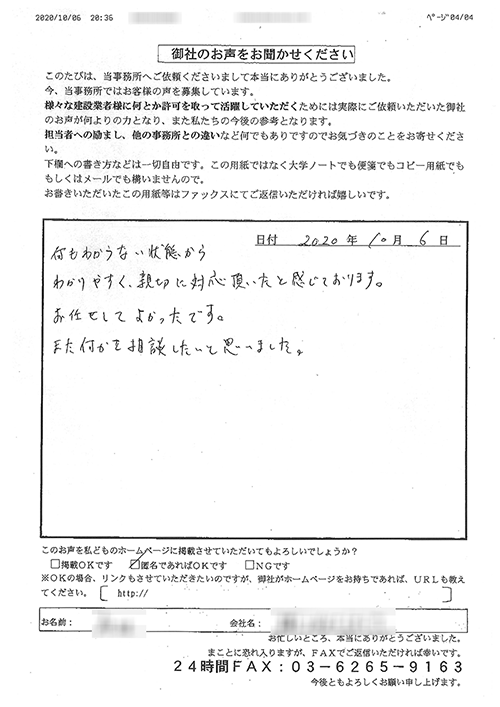 2020/10/06 20:36 ﾍﾟｰｼﾞ04/04
御社のお声をお聞かせください
このたびは、当事務所へご依頼くださいまして本当にありがとうございました。
今、当事務所ではお客様の声を募集しています。
様々な建設業者様に何とか許可を取って活躍していただくためには実際にご依頼いただいた御社
のお声が何よりの力となり、また私たちの今後の参考となります。
担当者への励まし、他の事務所との違いなど何でもありですのでお気づきのことをお寄せくださ
い。
下欄への書き方などは一切自由です。この用紙ではなく大学ノートでも便箋でもコピー用紙でも
もしくはメールでも構いませんので。
お書きいただいたこの用紙等はファックスにてご返信いただければ嬉しいです。
日付 2020年 10月 6日
何もわからない状態から
わかりやすく、親切に対応頂いたと感じております。
お任せしてよかったです。
また何かを相談したいと思いました。
このお声を私どものホームページに掲載させていただいてもよろしいでしょうか？
□掲載OKです ☑匿名であればOKです □NGです
※OKの場合、リンクもさせていただきたいのですが、御社がホームページをお持ちであれば、URLも教え
てください。 [ http:// ]
お名前： 会社名：
お忙しいところ、本当にありがとうございました。
まことに恐れ入りますが、FAXでご返信いただければ幸いです。
24時間FAX：03-6265-9163
今後ともよろしくお願い申し上げます。